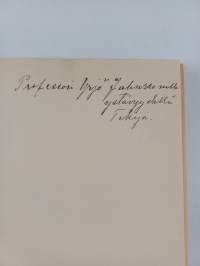 Professori Yrjö Jahnssonille
ystävyydellä
Tekijä.